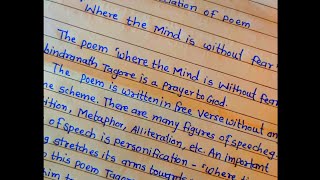 ciation of poem
"Where the Mind is without fear"
The poem "where the Mind is without fear
bindranath Tagore is a prayer to God.
The poem is written in free verse without an
me scheme. There are many figures of speech eg.
tition, Metaphor, Alliteration, etc. An important
of speech is personification - "where th
g stretches its arms towards
this poem Tagor
him t